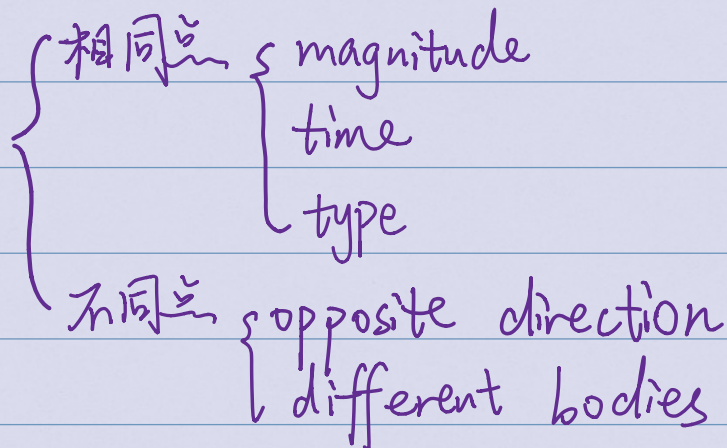 相同点 magnitude
time
type
不同点 opposite direction
different bodies